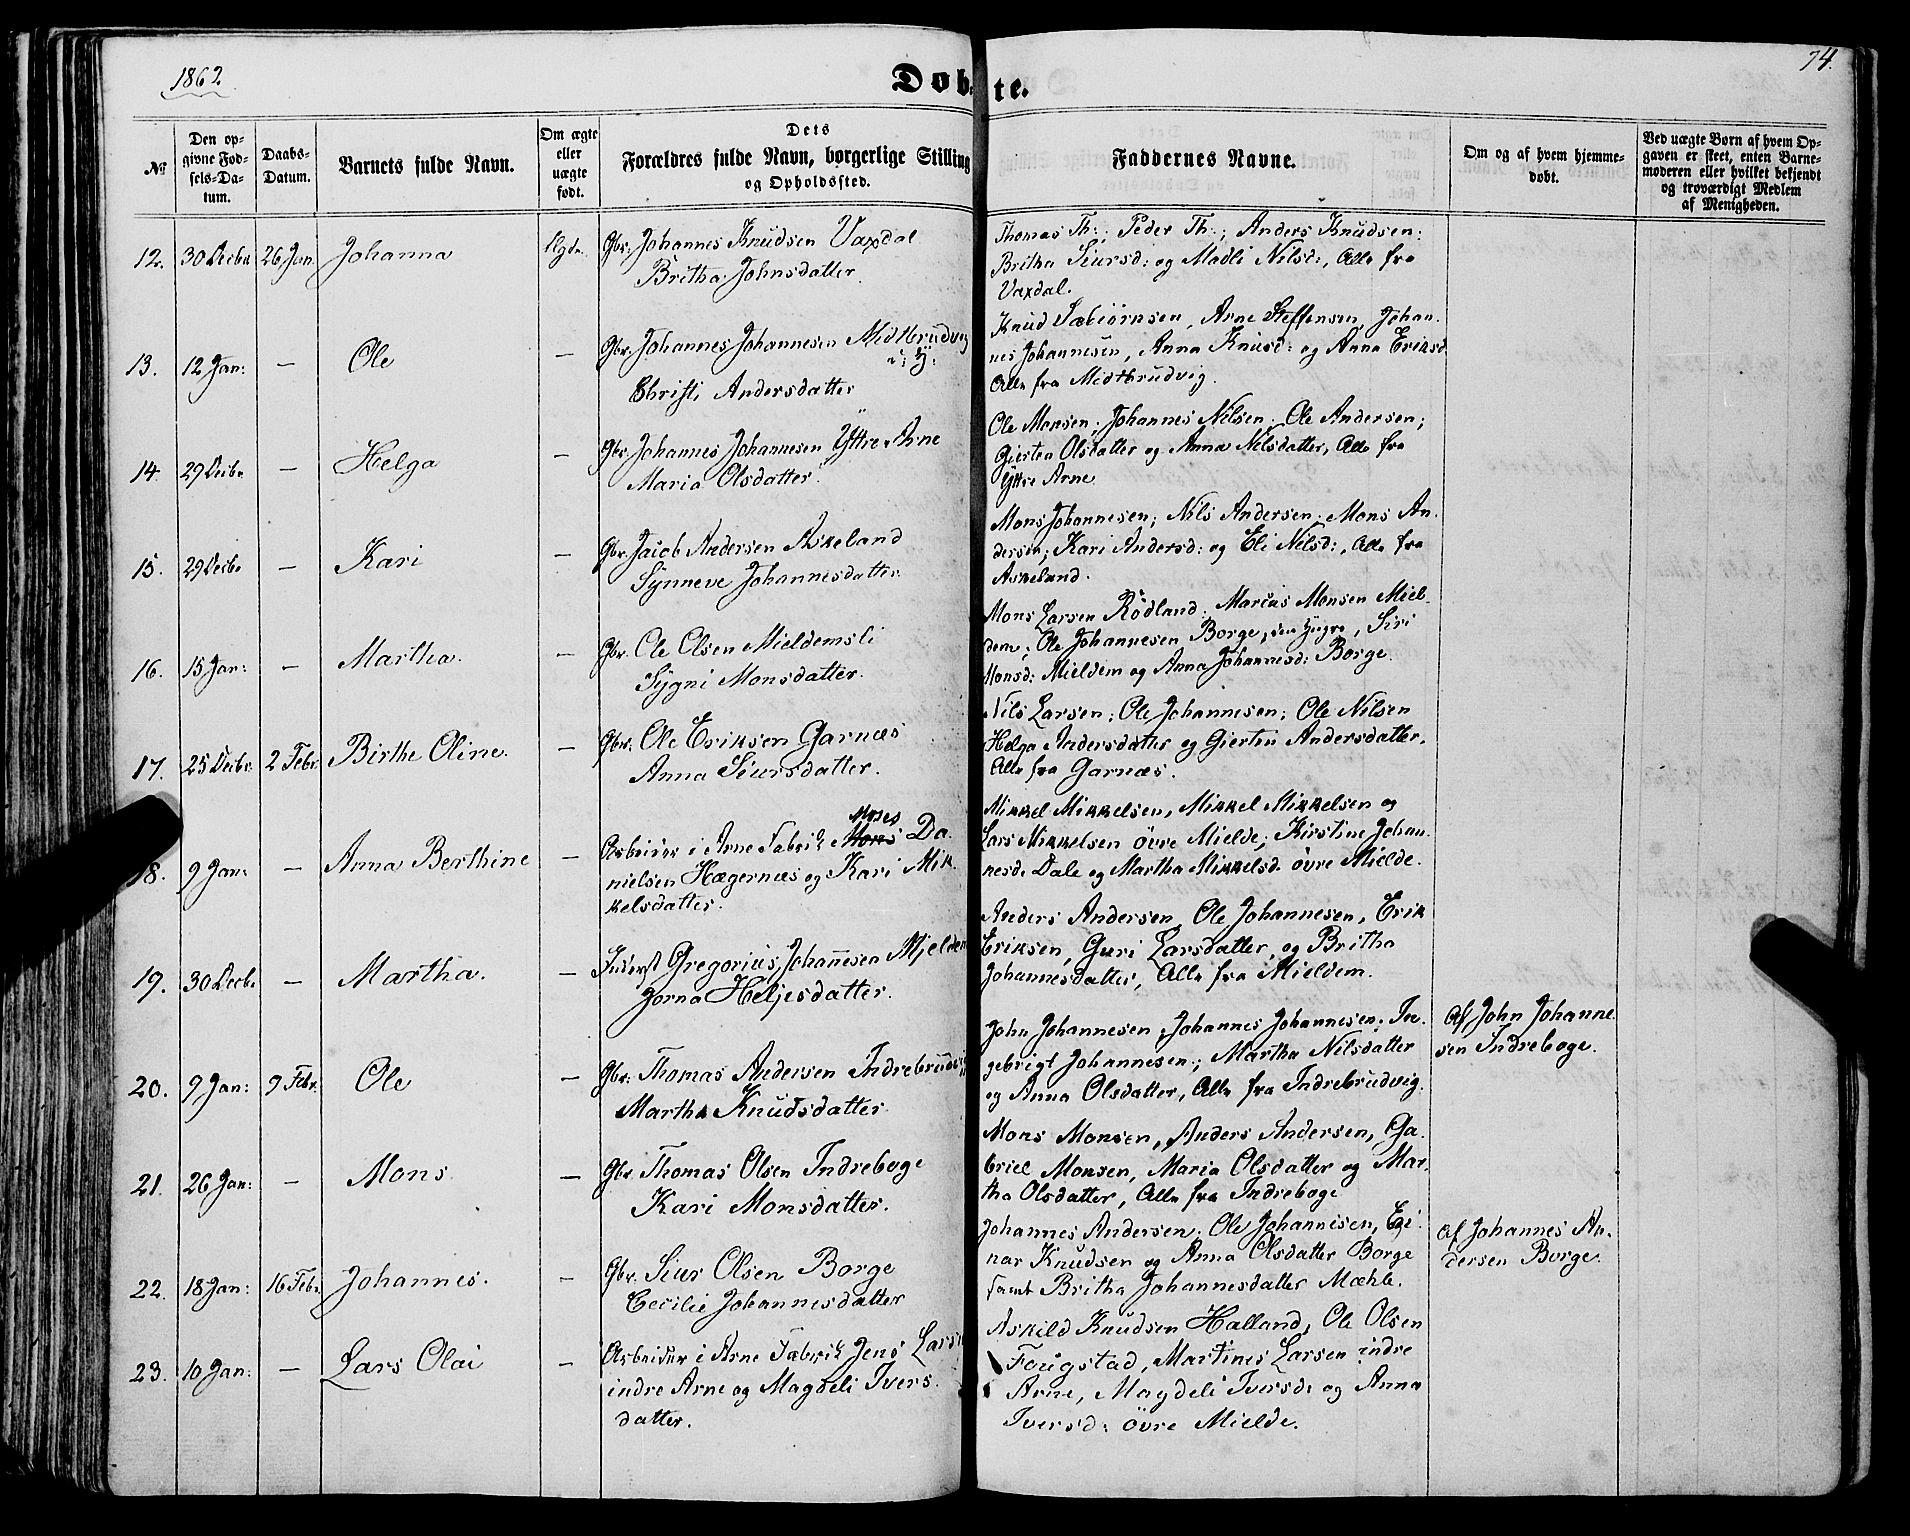 1862
74.
Døbte.
No
Den opgivne Fødsels-Datum.
Daabs-Datum.
Barnets fulde Navn.
Om ægte eller uægte født.
Dets Forældres fulde Navn, borgerlige Stilling og Opholdssted.
Faddernes Navne.
Om og af hvem hjemmedøbt.
Ved uægte Børn af hvem Opgaven er skeet, enten Barnemoderen eller hvilket bekjendt og troværdigt Medlem af Menigheden.
12. 30 Decbr 26 Jan. Johanna Ægte.
Gbr. Johannes Knudsen Vaxdal
Britha Johnsdatter.
Thomas Th:; Peder Th:; Anders Knudsen:
Britha Siursd: og Madli Nilsd:, Alle fra
Vaxdal.
13. 12 Jan: — Ole —
Gbr. Johannes Johannesen Midtbrudvig
d: y:
Christi Andersdatter
Knud Sæbiörnsen, Arne Steffensen, Johan-
nes Johannesen, Anna Knusd: og Anna Eriksd
Alle fra Midtbrudvig.
14. 29 Decbr — Helga —
Gbr. Johannes Johannesen Yttre Arne
Maria Olsdatter.
Ole Monsen; Johannes Nilsen; Ole Andersen;
Gierten Olsdatter og Anna Nilsdatter, Alle fra
Yttre Arne.
15. 29 Decbr — Kari —
Gbr. Jacob Andersen Askeland
Synneve Johannesdatter.
Mons Johannesen; Nils Andersen; Mons An-
dersen; Kari Andersd: og Eli Nilsd:, Alle fra
Askeland.
16. 15 Jan: — Martha. —
Gbr. Ole Olsen Mieldemsli
Sygni Monsdatter.
Mons Larsen Rödland. Marius Monsen Miel-
dem; Ole Johannesen Borge, den Yngre, Siri
Monsd: Mieldem og Anna Johannesd: Borge.
17. 25 Decbr. 2 Febr. Birthe Oline. —
Gbr. Ole Eriksen Garnæs
Anna Siursdatter.
Nils Larsen; Ole Johannesen; Ole Nilsen
Helga Andersdatter og Giertin Andersdatter,
Alle fra Garnæs.
18. 9 Jan: — Anna Berthine —
Moses
Arbeider i Arne Fabrik Mons Da-
nielsen Hægernæs og Kari Mik-
kelsdatter.
Mikkel Mikkelsen, Mikkel Mikkelsen og
Lars Mikkelsen övre Mielde; Kirstine Johan-
nesd. Dale og Martha Mikkelsd. övre Mielde.
19. 30 Decbr — Martha. —
Inderst Gregorius Johannesen Mjeldem
Jorna Heljesdatter.
Anders Andersen, Ole Johannesen, Erik
Eriksen, Guri Larsdatter, og Britha
Johannesdatter, Alle fra Mieldem.
20. 9 Jan: 9 Febr. Ole —
Gbr: Thomas Andersen Indrebrudvig
Martha Knudsdatter.
John Johannesen, Johannes Johannesen; In-
gebrigt Johannesen; Martha Nilsdatter
og Anna Olsdatter, Alle fra Indrebrudvig.
Af John Johanne-
sen Indreboge.
21. 26 Jan: — Mons. —
Gbr. Thomas Olsen Indreboge
Kari Monsdatter.
Mons Monsen, Anders Andersen, Ga-
briel Monsen, Maria Olsdatter og Mar-
tha Olsdatter, Alle fra Indreboge
22. 18 Jan: 16 Febr. Johannes. —
Gbr. Siur Olsen Borge
Cecilie Johannesdatter
Johannes Andersen; Ole Johannesen, Ei-
nar Knudsen og Anna Olsdatter Borge
samt Britha Johannesdatter Mæhle.
Af Johannes An-
dersen Borge.
23. 10 Jan: — Lars Olai —
Arbeider i Arne Fabrik Jens Larsen
indre Arne og Magdeli Ivers-
datter.
Askild Knudsen Halland, Ole Olsen
Fougstad, Martines Larsen indre
Arne, Magdeli Iversd: og Anna
Iversd: övre Mielde.